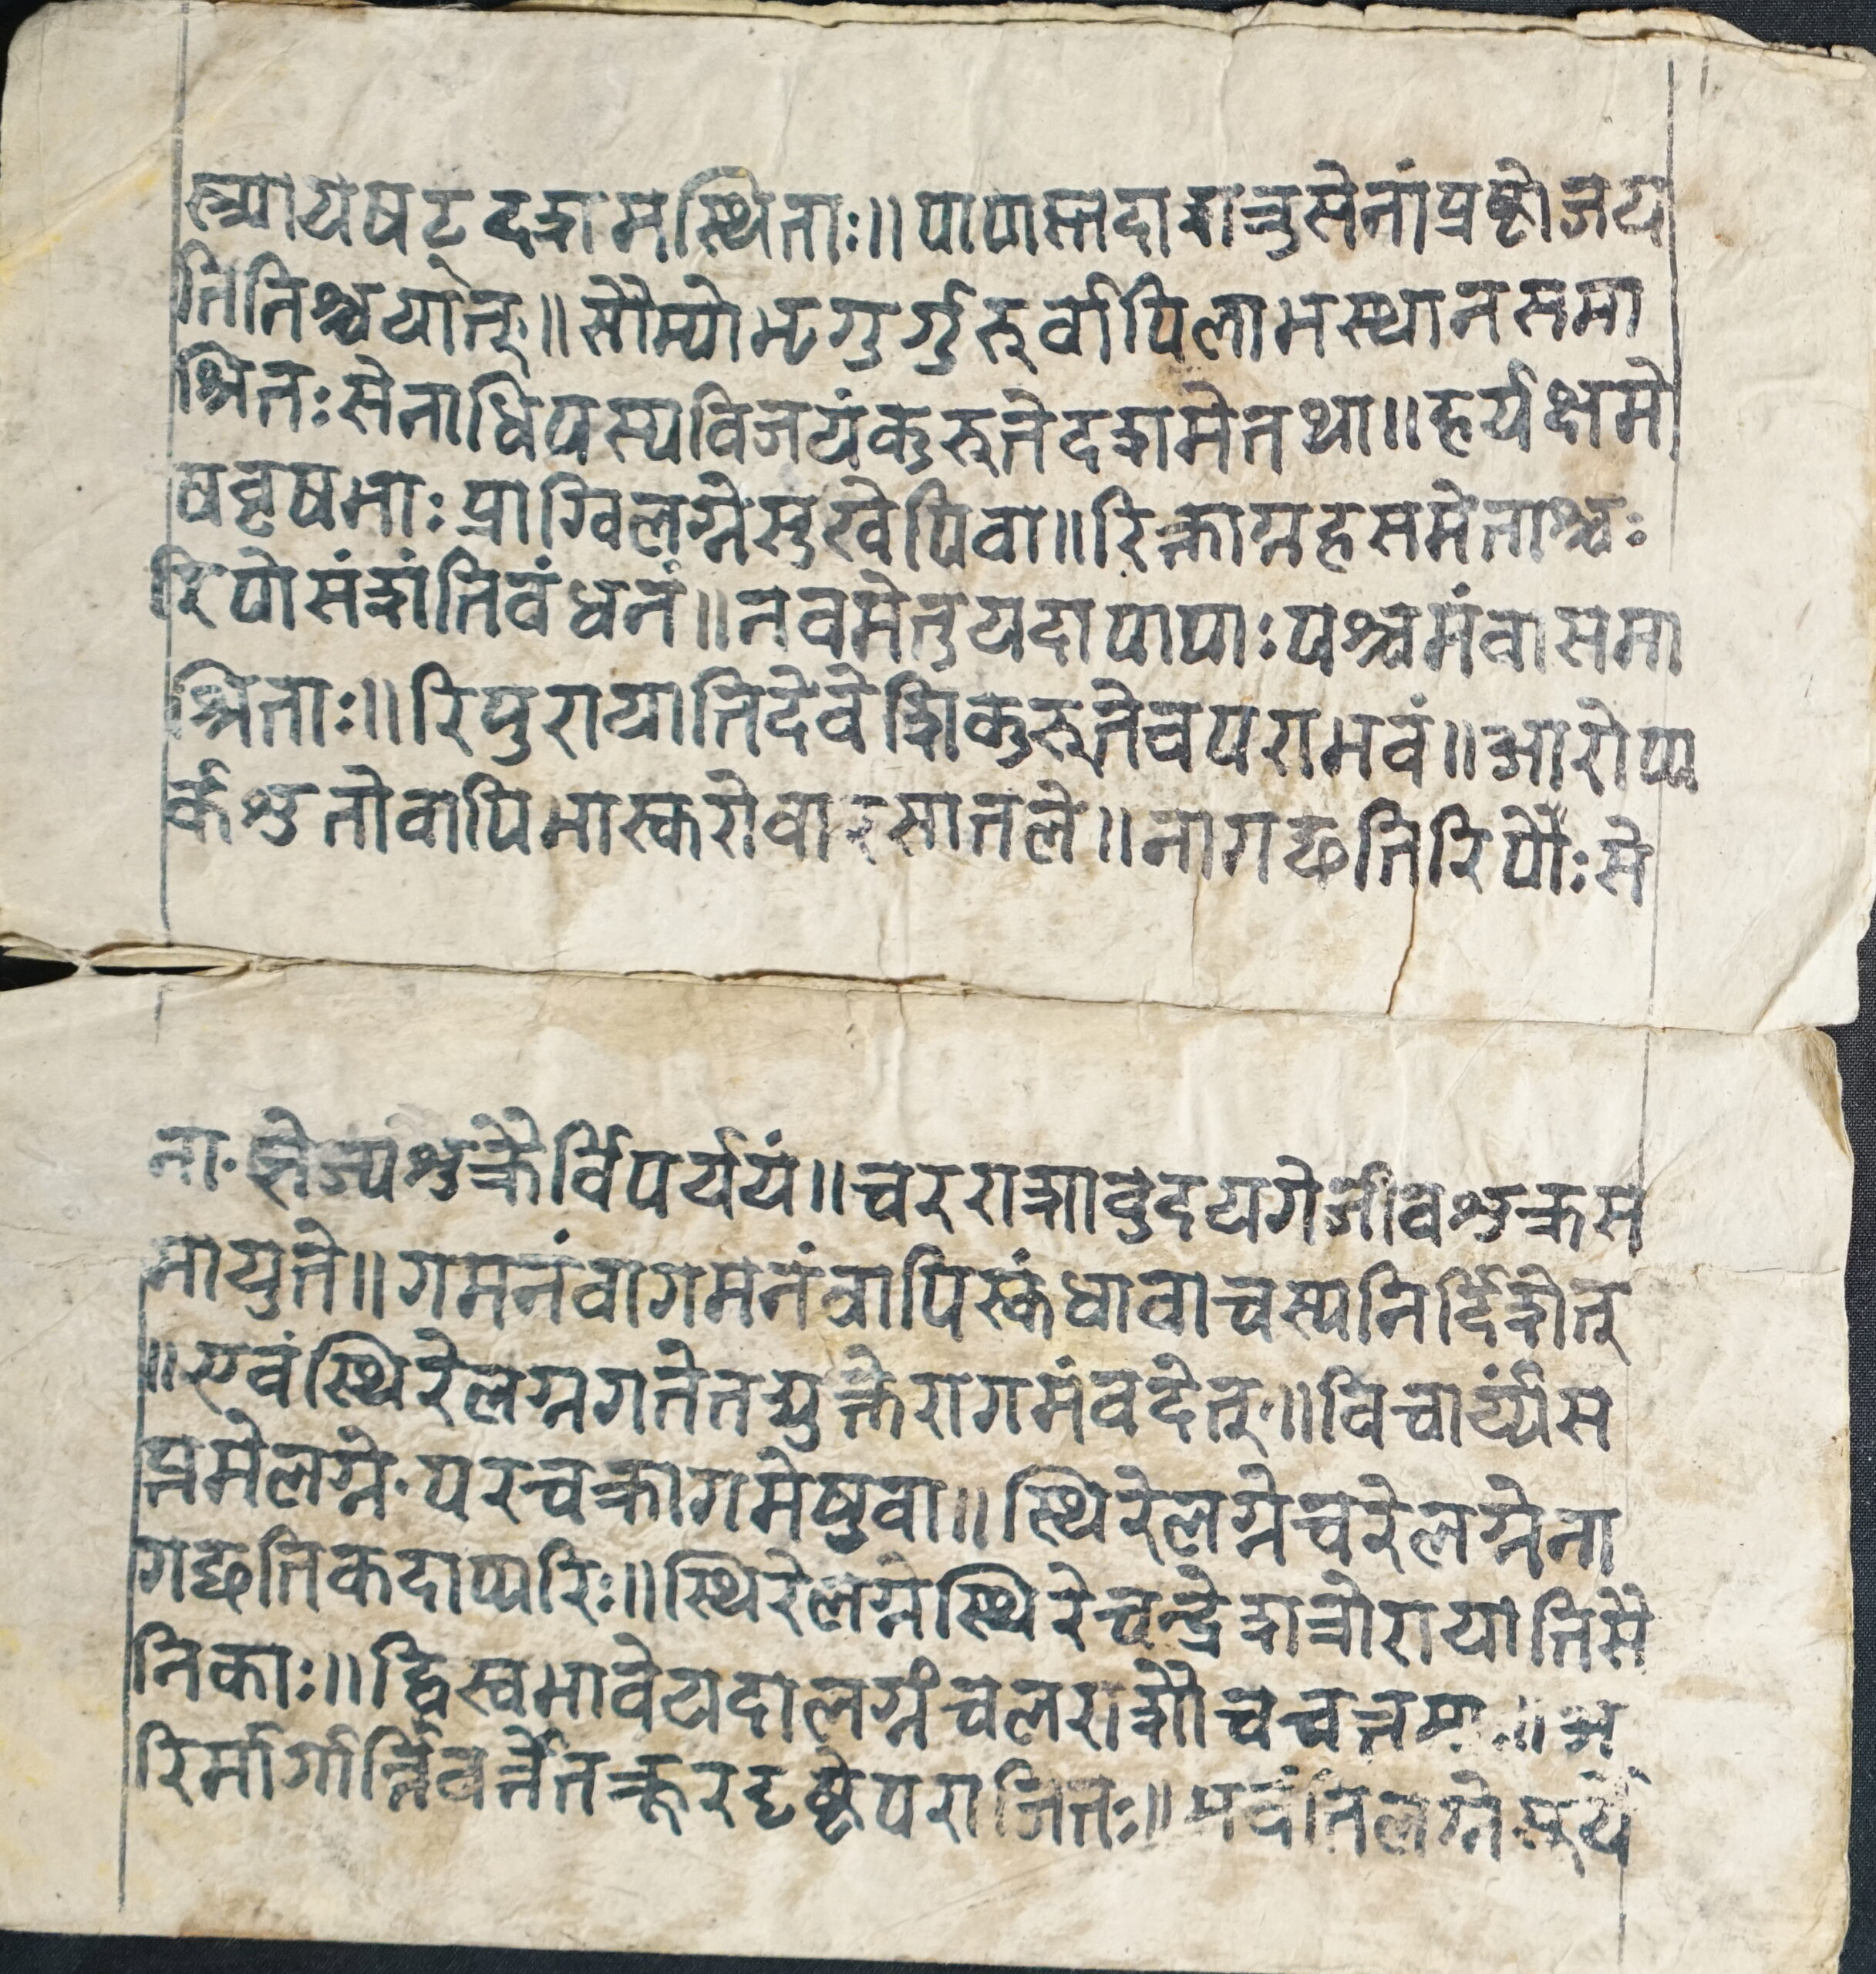 त्स्यायषट्दशमस्थिताः॥पापास्तदाशत्रुसेनांप्रष्टोजय
तिनिश्चयात्॥सौम्योभृगुर्गुरुर्वापिलाभस्थानसमा
श्रितःसेनाधिपस्यविजयंकुरुतेदशमेतथा॥हर्यक्षमे
षवृषभाःप्राग्विलग्नेसुखेपिवा॥रिक्ताग्रहसमेताश्चः
रिपोसंशांतिवंधनं॥नवमेतुयदापापाःपश्चमंवासमा
श्रिताः॥रिपुरायातिदेवेशिकुरुतेवपराभवं॥आरोप्य
र्कश्रुतोवापिभास्करोवारसातले॥नागछतिरिपौःसे
नाःज्ञेज्यशुक्रैर्विपर्ययं॥चरराशावुदयगेजीवशुक्रस
मायुते॥गमनंवागमनंवापिस्कंधावाचस्यनिर्दिशेत्
॥एवंस्थिरेलग्नगतेतद्युक्तेरागमंवदेत्॥विचार्य्यस
प्तमेलग्नेपरचक्रागमेषुवा॥स्थिरेलग्नेचरेलग्नेना
गछतिकदाप्यरिः॥स्थिरेलग्नेस्थिरेचन्द्रेशत्रोरायातिसै
निकाः॥द्विस्वभावेयदालग्नंचलराशौच॥अ
रिर्मार्गान्निवर्त्तेतक्रूरदृष्टेपराजितः॥भवंतिलग्नेसूर्ये